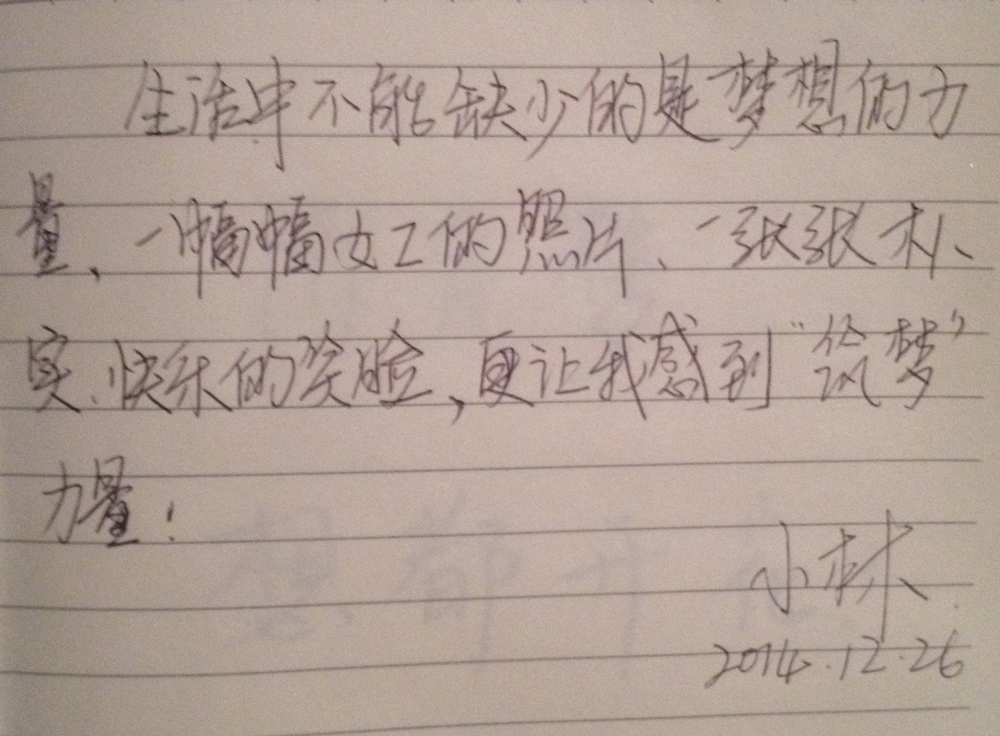 生活中不能缺少的是梦想的力
量、一幅幅女工的照片、一张张朴
实、快乐的笑脸,更让我感到“筑梦”
力量!
小林
2014.12.26